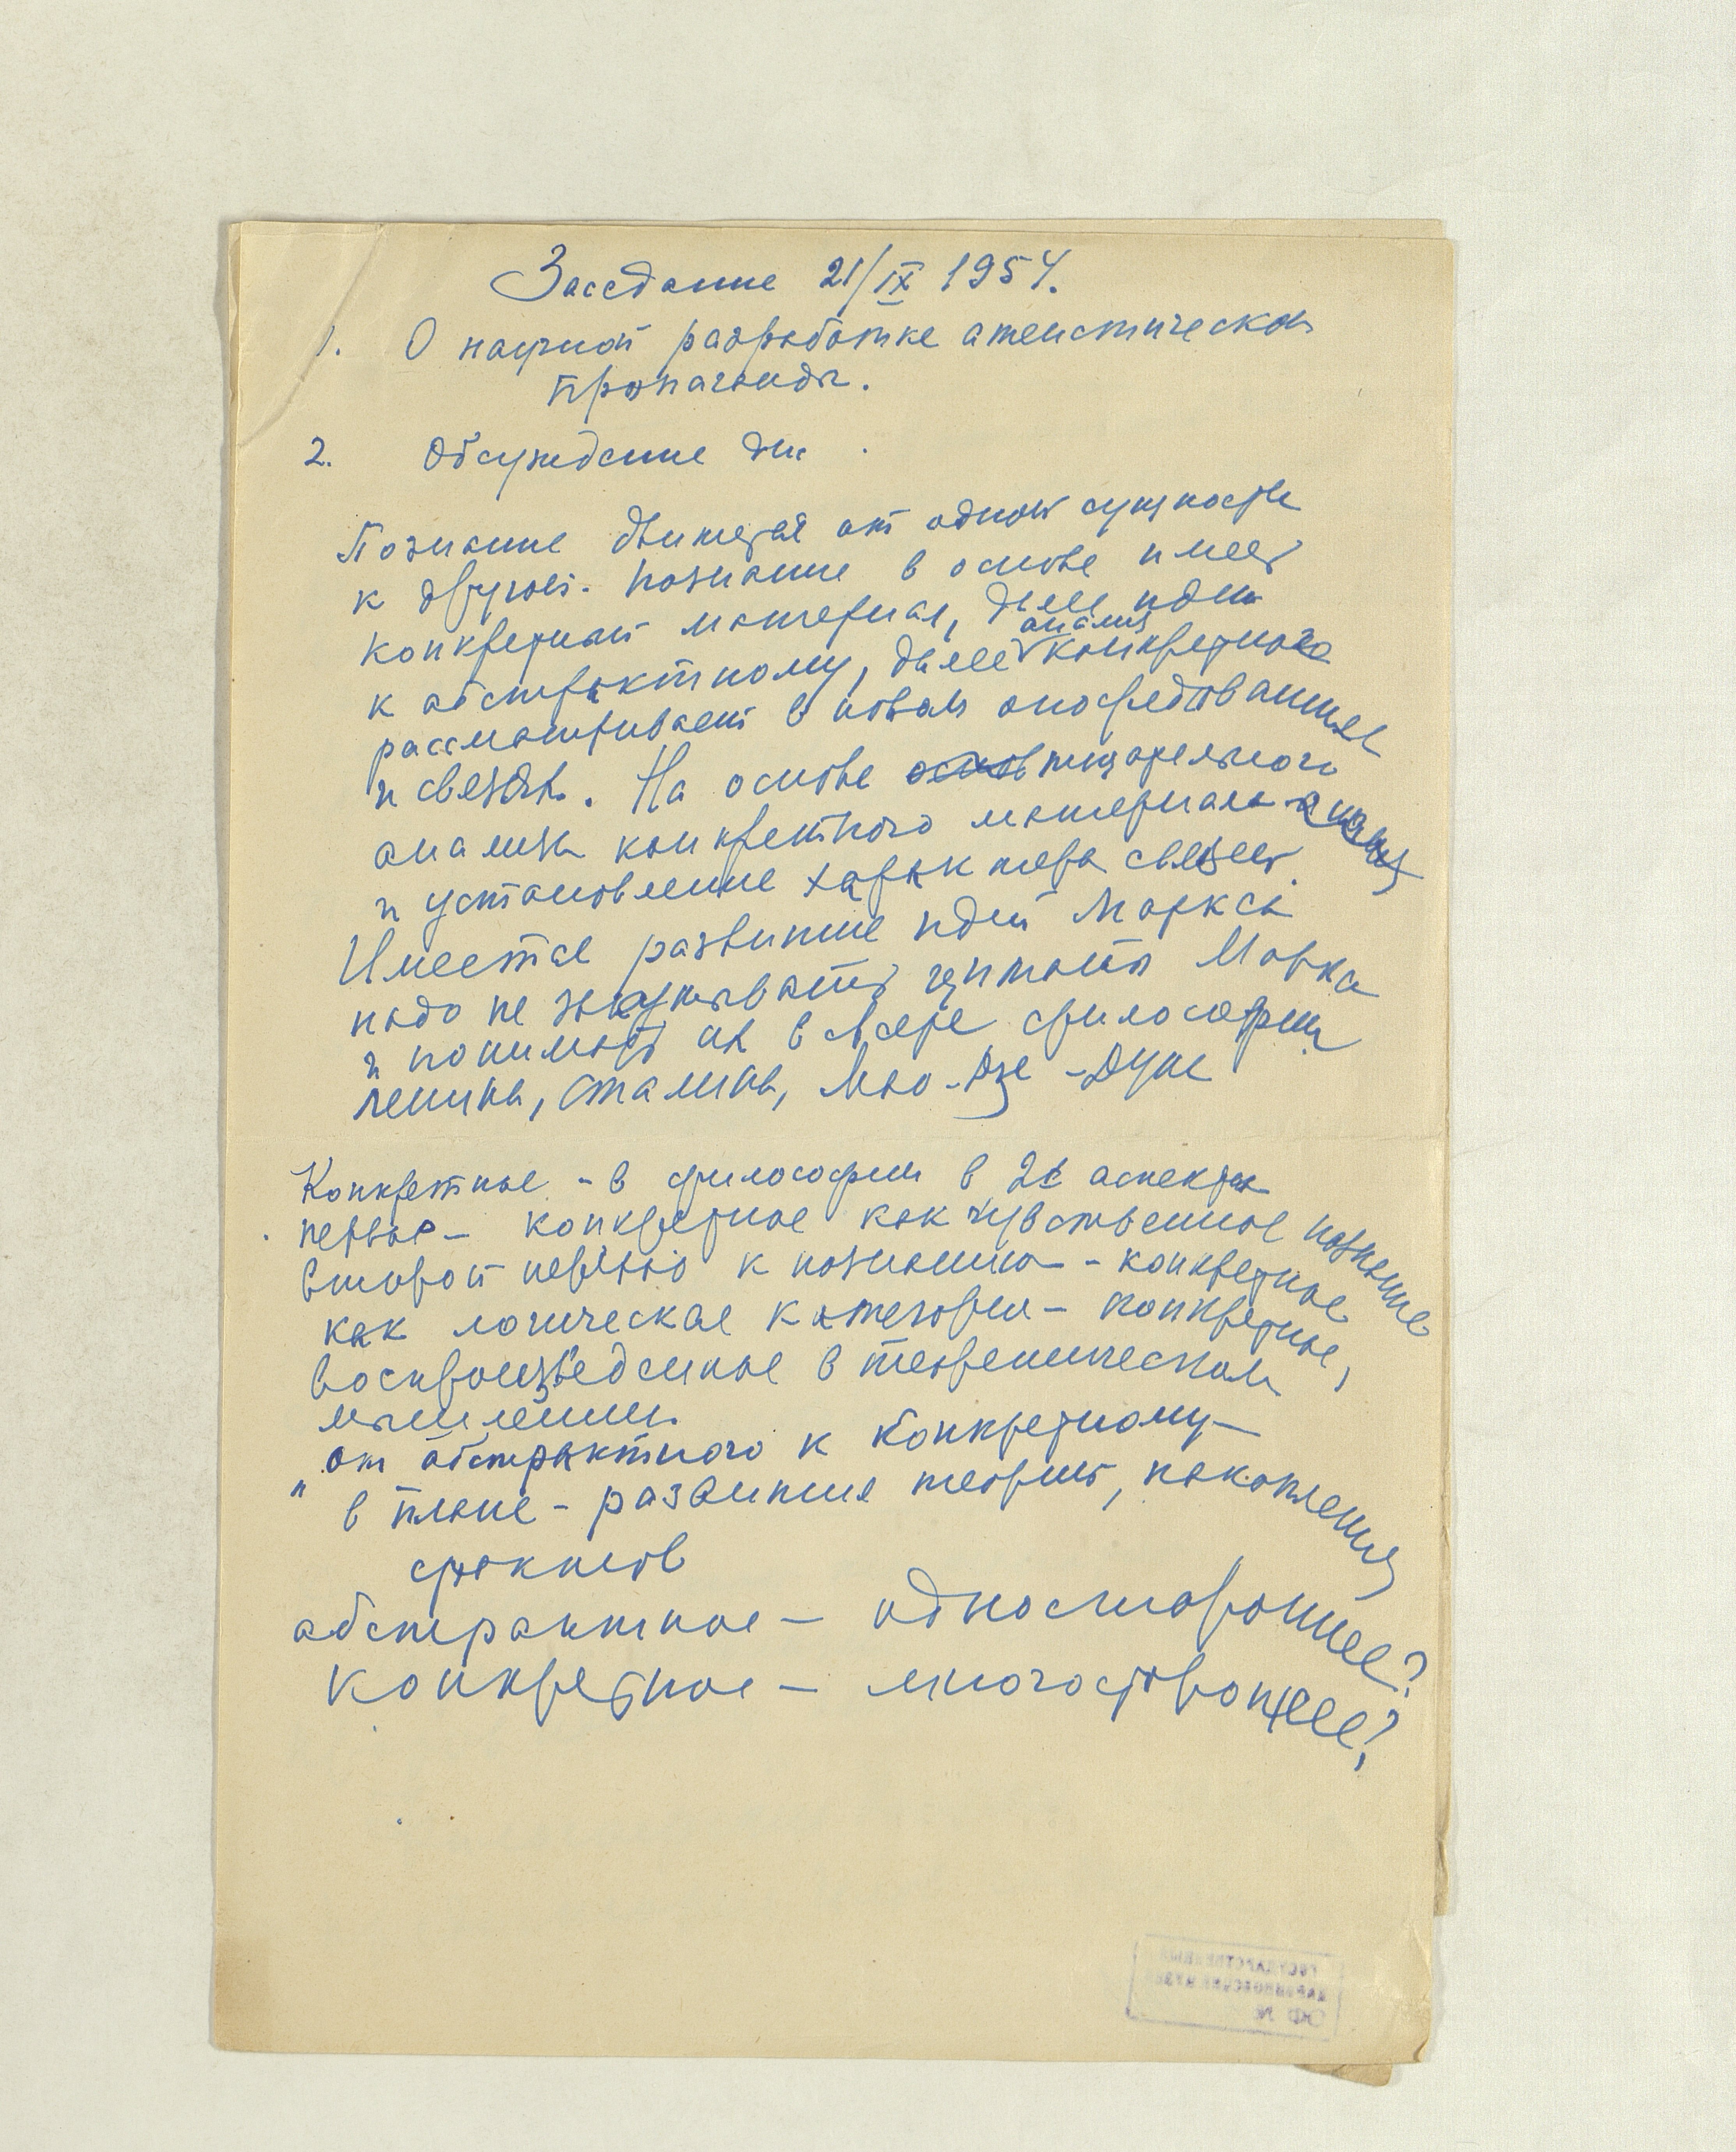 Заседание 21/IX 1954.
1. О научной разработке атеистической
пропаганды.
2. Обсуждение дис .
Познание движется от одной сущности
к другой. Познание в основе имеет
конкретный материал, далее идет
к абстрактному, далее анализ конкретного
рассматривает в новых опосредованиях
и связях. На основе тщательного
анализа конкретного материала анализ
и установление характера связей.
Имеется развитие идей Маркса
надо не цитаты Маркса
и понимать их в философии
Ленина, Сталина, Мао-Дзе-Дуна
Конкретное - в философии в 2х аспектах
первое - конкретное как чувственное познание
второй к познанию - конкретное
как логическая категория - конкретное,
воспроизведенное в теоретическом
мышлении.
"от абстрактного к конкретному -
в плане - развития теории, накопления
фактов
абстрактное - одностороннее?
конкретное - многостороннее?
ГОСУДАРСТВЕННЫЙ
ДАРВИНОВСКИЙ МУЗЕЙ
ОФ №